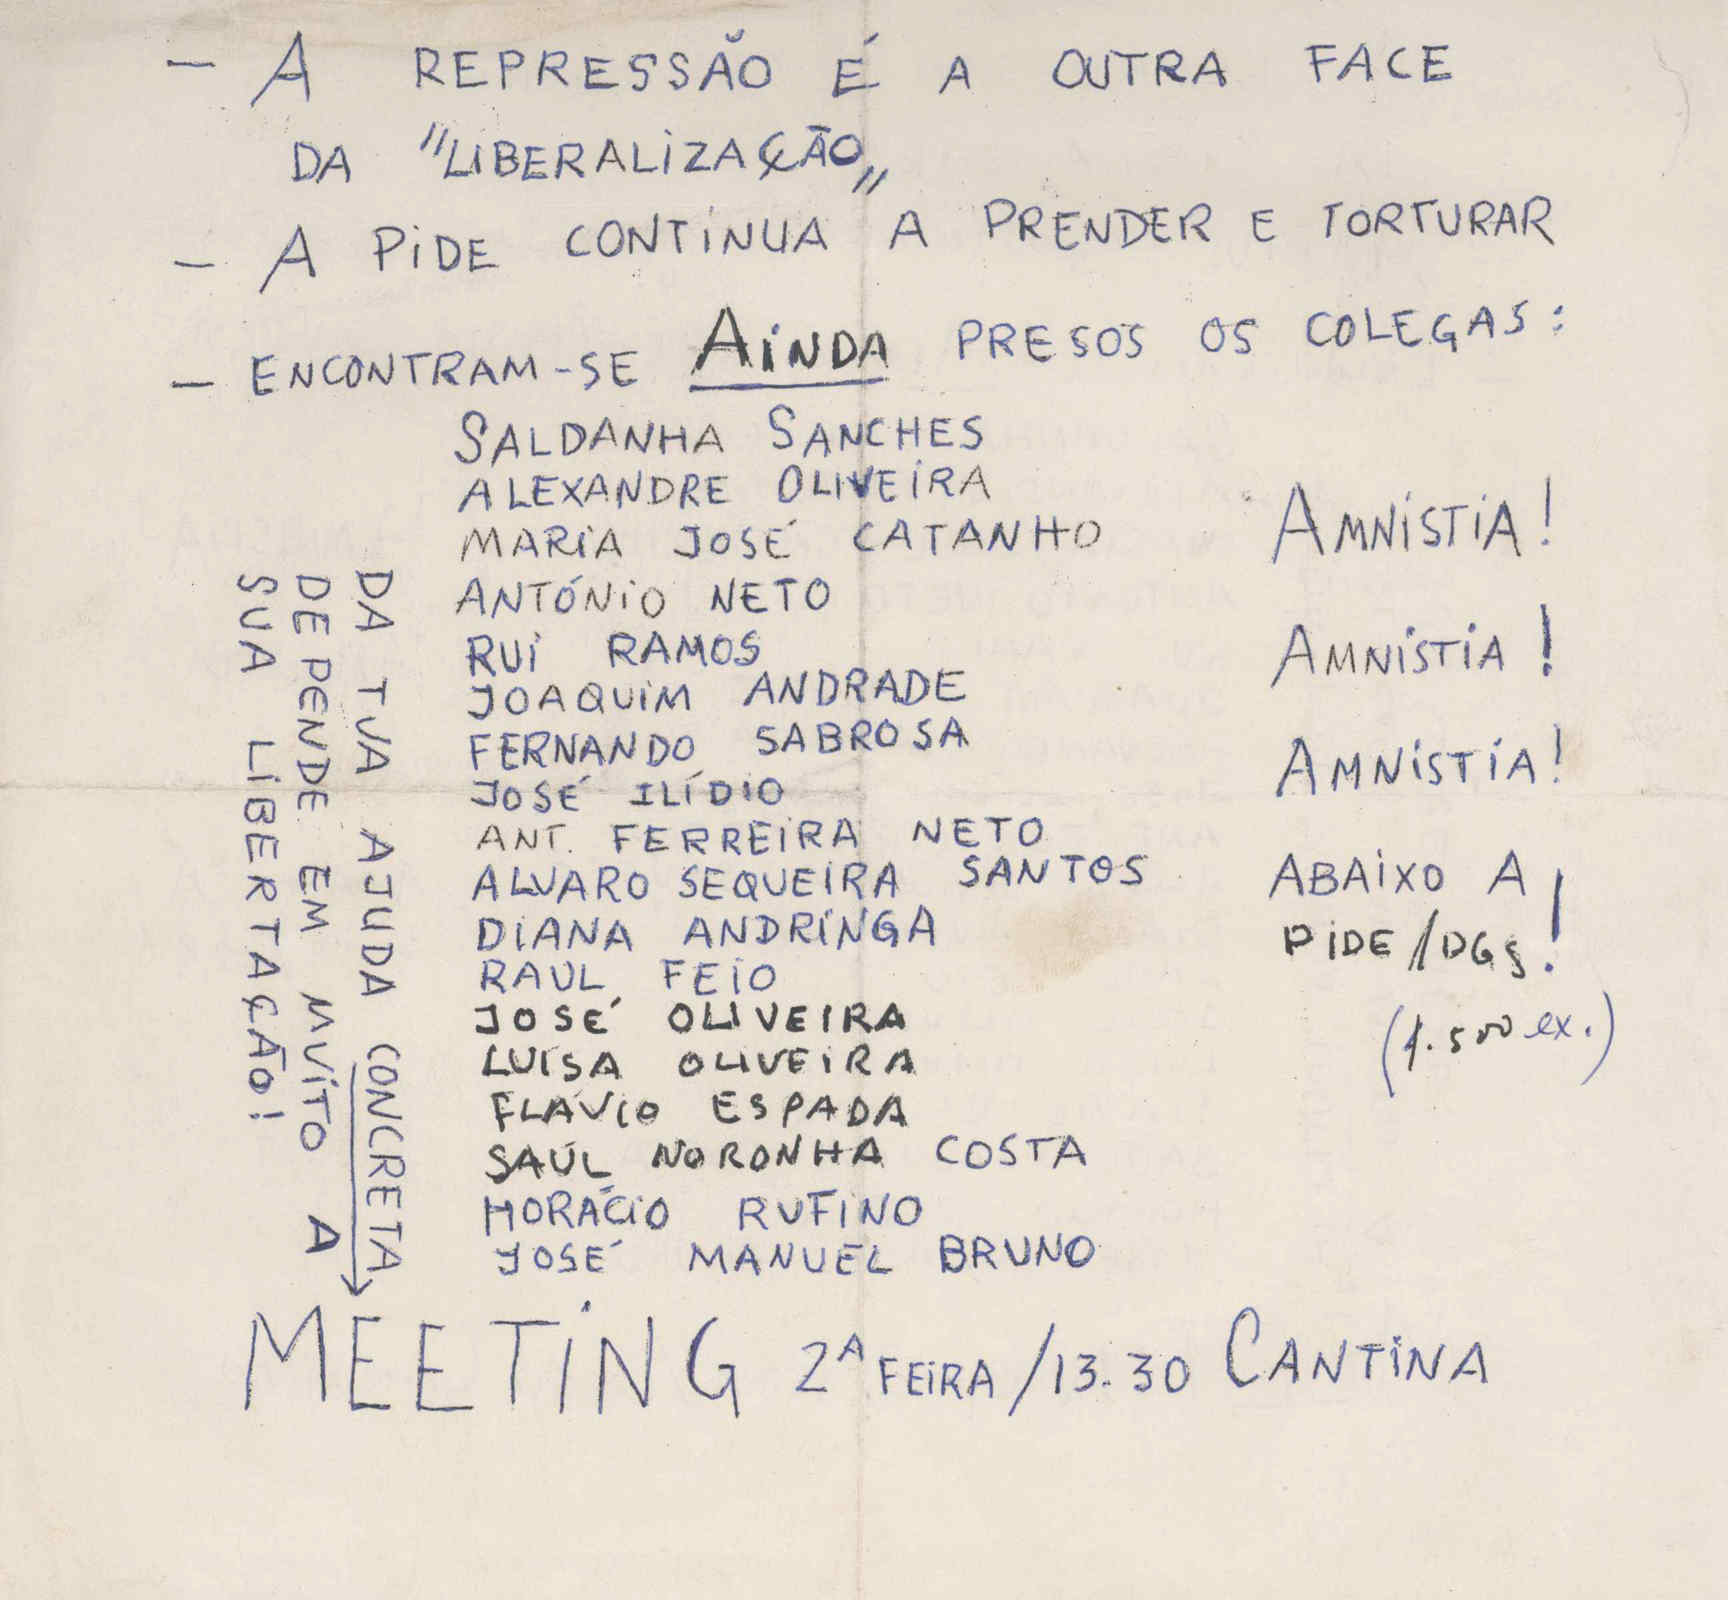 — A REPRESSÃO É A OUTRA FACE
DA "LIBERALIZAÇÃO"
— A PIDE CONTINUA A PRENDER E TORTURAR
— ENCONTRAM-SE AINDA PRESOS OS COLEGAS:
SALDANHA SANCHES
ALEXANDRE OLIVEIRA
MARIA JOSÉ CATANHO
ANTÓNIO NETO
RUI RAMOS
JOAQUIM ANDRADE
FERNANDO SABROSA
JOSÉ ILÍDIO
ANT. FERREIRA NETO
ALVARO SEQUEIRA SANTOS
DIANA ANDRINGA
RAUL FEIO
JOSÉ OLIVEIRA
LUISA OLIVEIRA
FLÁVIO ESPADA
SAÚL NORONHA COSTA
HORÁCIO RUFINO
JOSÉ MANUEL BRUNO
DA TUA AJUDA CONCRETA
DEPENDE EM MUITO A
SUA LIBERTAÇÃO!
AMNISTIA!
AMNISTIA!
AMNISTIA!
ABAIXO A
PIDE/DGS!
(1.500 ex.)
MEETING 2ª FEIRA/13.30 CANTINA